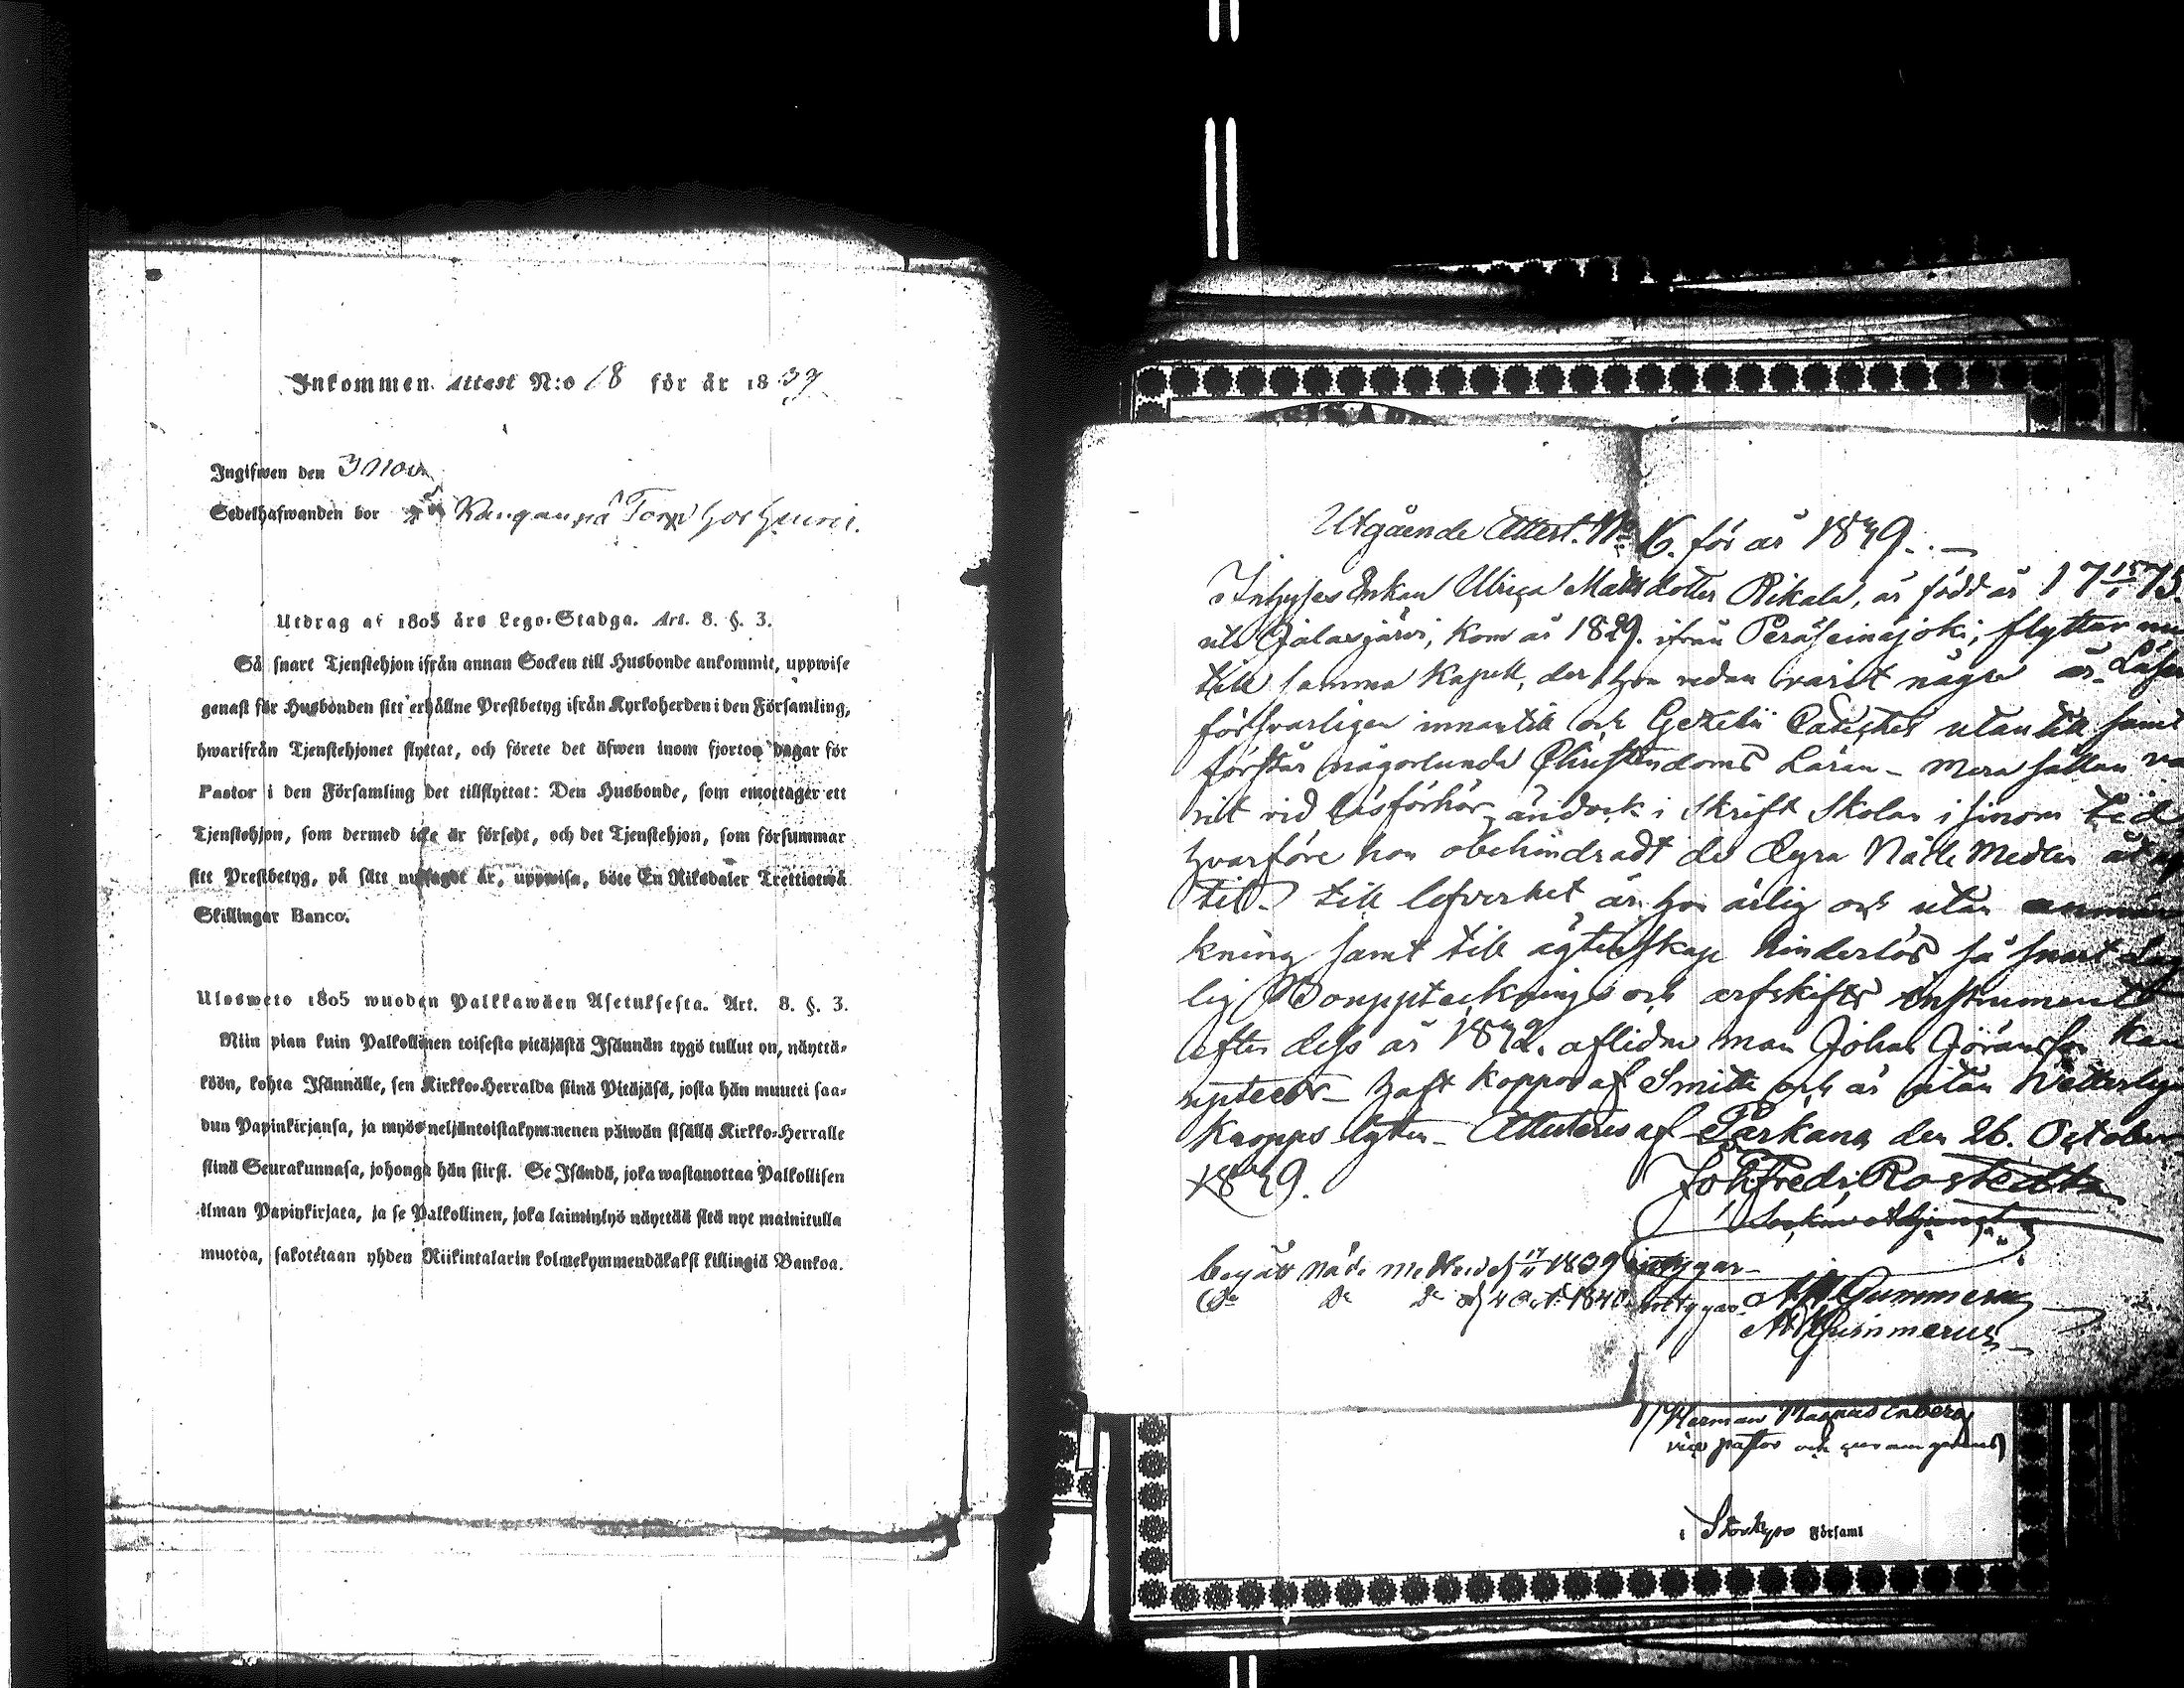 Inkommen Attest N:o 18 för år 1839
Ingifwen den 3 Nov
Sedelhafwanden bor Torp hos
Utdrag af 1805 års Lego-Stadga. Art. 8. §. 3.
Så snart Tjenstehjon ifrån annan Socken till Husbonde ankommit, uppwise
genast för Husbonden sitt erhållne Prestbetyg ifrån Kyrkoherden i den Församling,
hwarifrån Tjenstehjonet flyttat, och förete det äfwen inom fjorton dagar för
Pastor i den Församling det tillflyttat: Den Husbonde, som emottager ett
Tjenstehjon, som dermed icke är försedt, och det Tjenstehjon, som försummar
sitt Prestbetyg, på sätt nu sagdt är, uppwisa, böte En Riksdaler Trettiotwå
Skillingar Banco.
Ulosweto 1805 wuoden Palkkawäen Asetuksesta. Art. 8. §. 3.
Niin pian kuin Palkollinen toisesta pitäjästä Isännän tygö tullut on, näyttä-
köön, kohta Isännälle, sen Kirkko-Herralda siinä Pitäjäsä, josta hän muutti saa-
dun Papinkirjansa, ja myös neljäntoistakymmenen päiwän sisällä Kirkko-Herralle
siinä Seurakunnasa, johonga hän siirsi. Se Isändä, joka wastanottaa Palkollisen
ilman Papinkirjata, ja se Palkollinen, joka laiminlyö näyttää sitä nyt mainitulla
muotoa, sakotetaan yhden Riikintalarin kolmekymmendäkaksi killingiä Bankoa.
Utgående Attest. No 16. för år 1839.
Inhyses Enkan Ulrica Matts dotter Rikala, är född år 17 15/1 75
uti Jalasjärvi, kom år 1829. ifrån Peräseinäjoki, flyttar nu
till samma Kapell, der hon redan varit några år. Läser
försvarligen innantill och Gezelii Cateches utantill samt
förstår någorlunda Christendoms Läran - mera sällan va
rit vid Läsförhör, ändock i Skrift Skolan i sinom tid
hvarföre hon obehindradt de Dyra Nåde Medlen
till lefvernet är hon ärlig och utan anmär
kning samt till ägtenskap hinderlös så snart lag
lig Bouppteckning och arfskifts instrument
efter dess år 1832. aflidne man Johan Jöransson kan
upteés - haft koppor af Smitta och är utan Wetterliga
Kropps lyten - Attesteras af Parkano den 26. October
1839.
Joh Fredr. Rostedt
Sockne Adjunct
Begått Nåde medlen d 17/11 1839 intygar
Do Do Do d 4 Oct. 1840 intygar
Gummerus
Gummerus
Herman Magnus Enberg
vice pastor
i Storkyro Församl